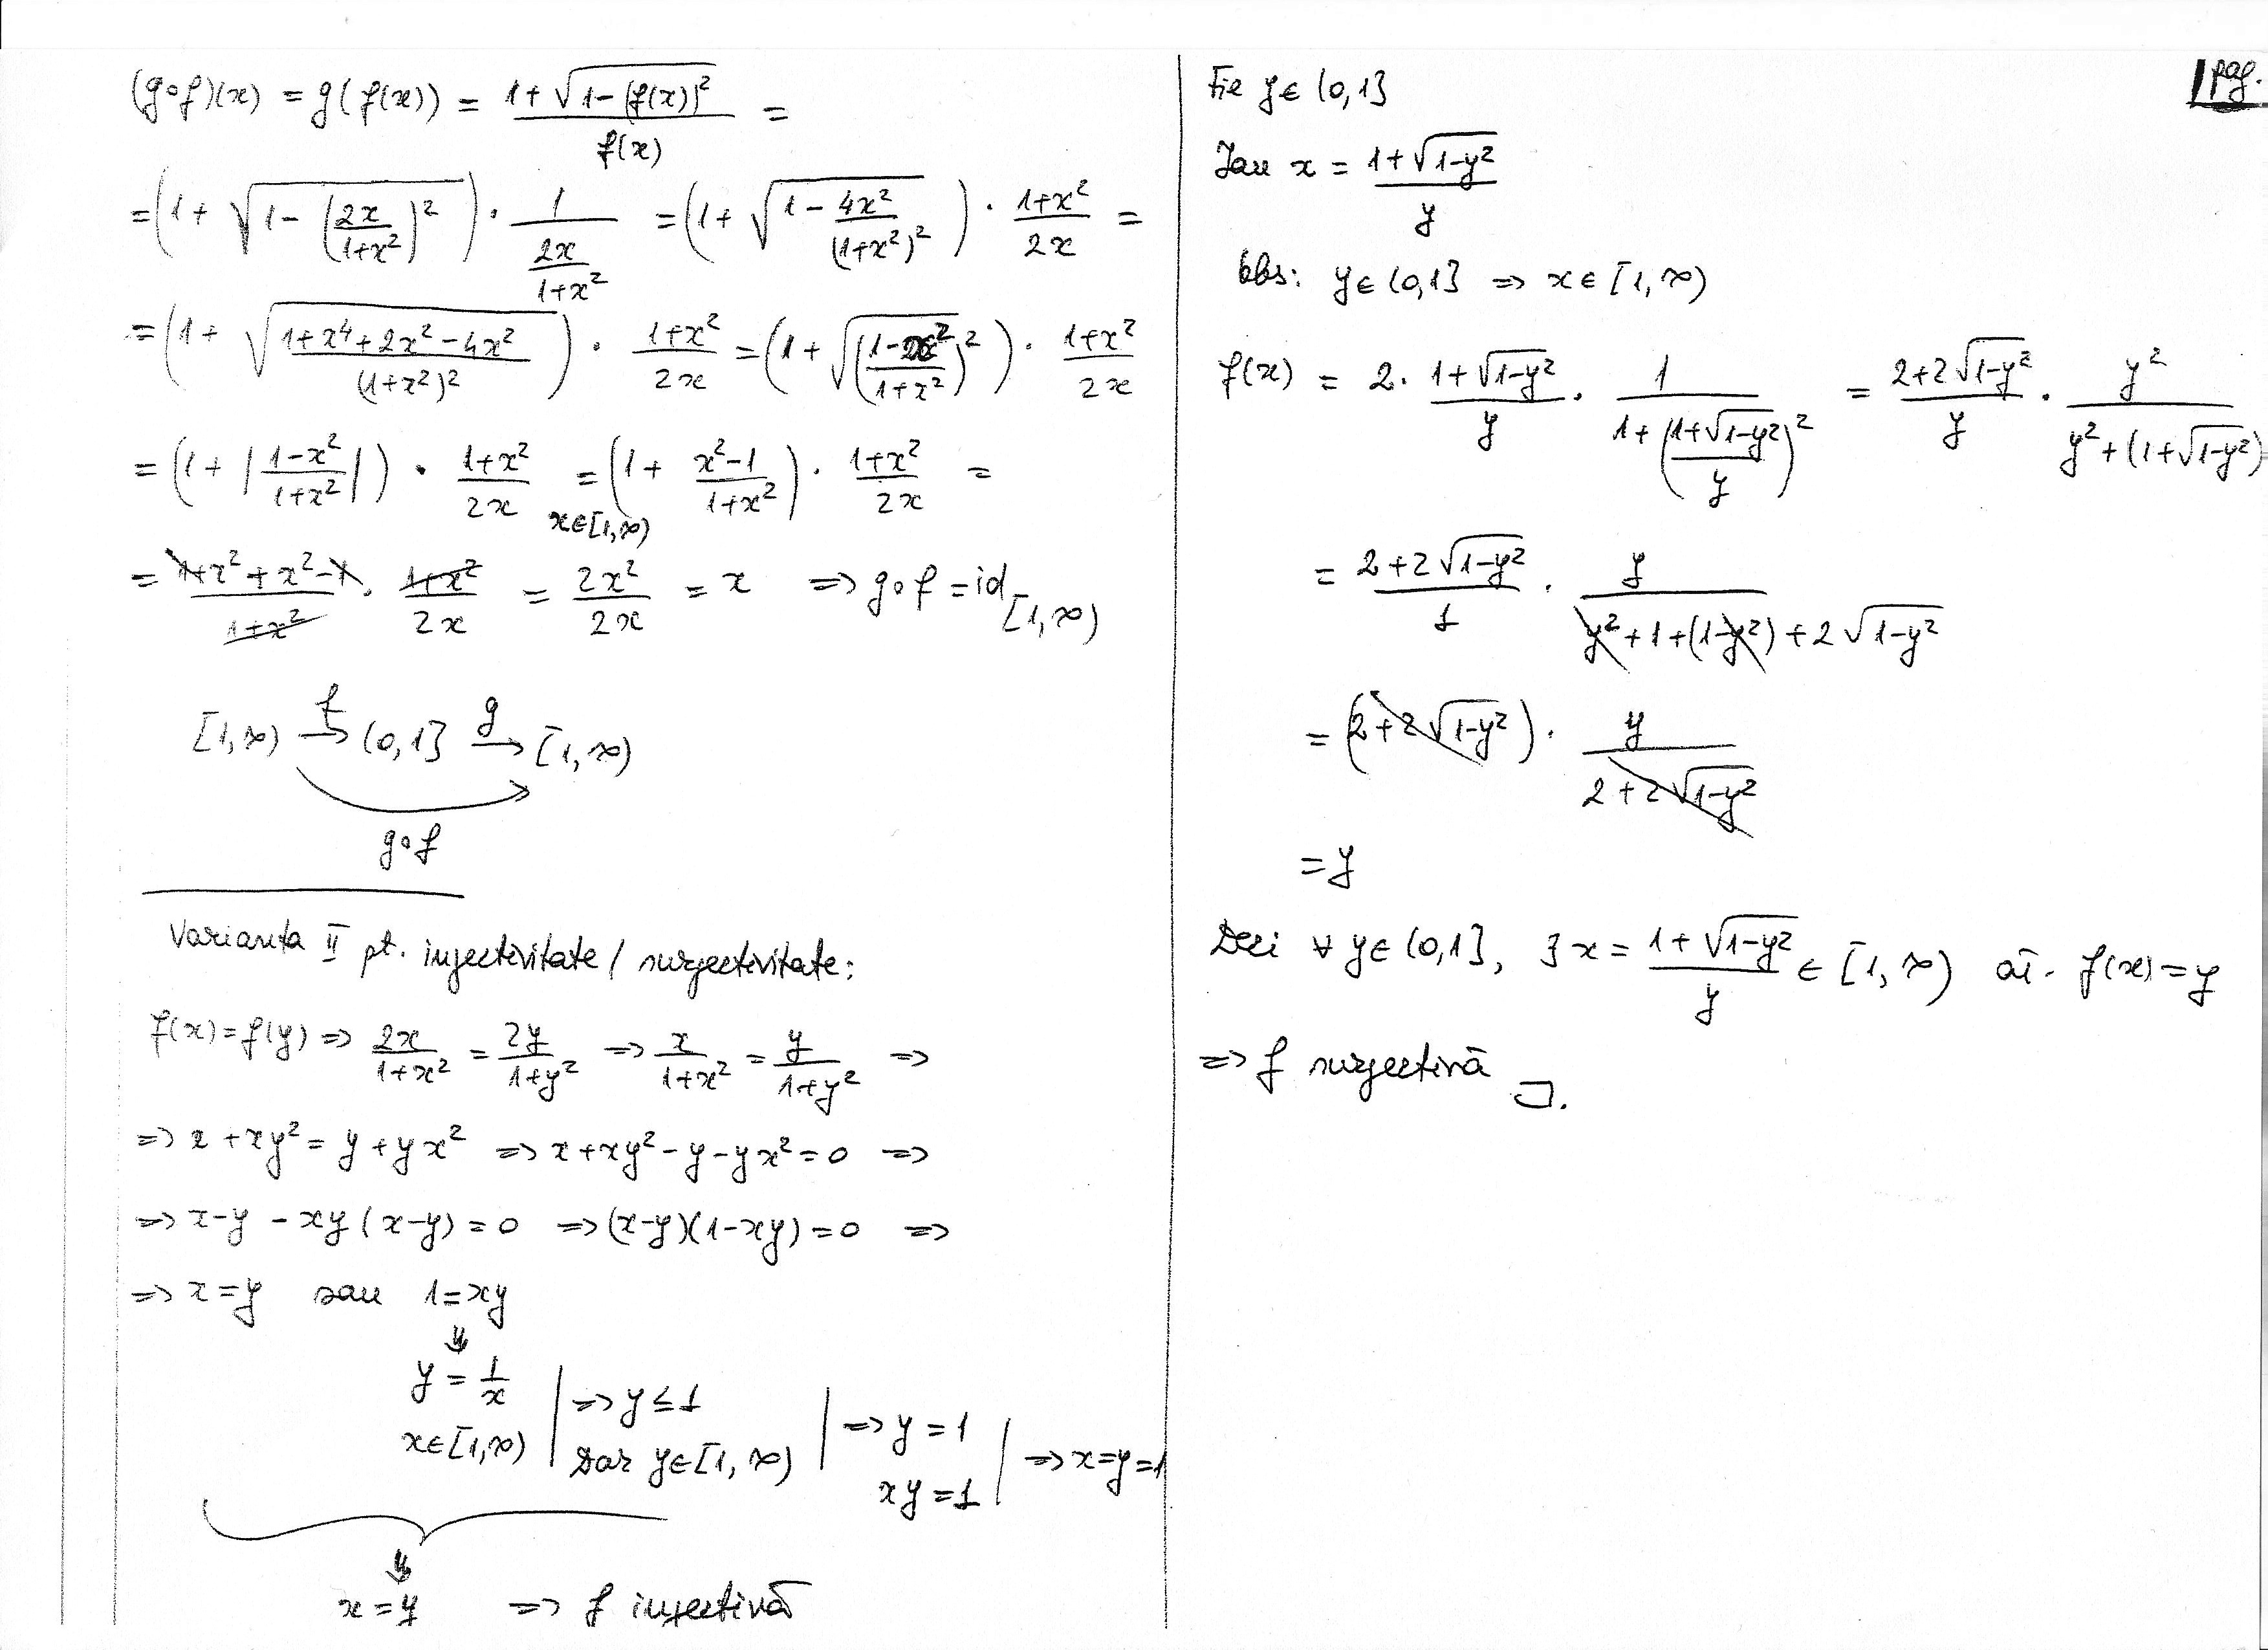 (g∘f)(x) = g(f(x)) = \frac{1+\sqrt{1-(f(x))^2}}{f(x)} =
= (1+ \sqrt{1-(\frac{2x}{1+x^2})^2}) · \frac{1}{\frac{2x}{1+x^2}} = (1+ \sqrt{1-\frac{4x^2}{(1+x^2)^2}}) · \frac{1+x^2}{2x} =
= (1+ \sqrt{\frac{1+x^4+2x^2-4x^2}{(1+x^2)^2}}) · \frac{1+x^2}{2x} = (1+\sqrt{(\frac{1-x^2}{1+x^2})^2}) · \frac{1+x^2}{2x}
= (1+ |\frac{1-x^2}{1+x^2}|) · \frac{1+x^2}{2x} =_{x∈[1,∞)} (1+ \frac{x^2-1}{1+x^2}) · \frac{1+x^2}{2x} =
= \frac{1+x^2+x^2-1}{1+x^2} · \frac{1+x^2}{2x} = \frac{2x^2}{2x} = x ⇒ g∘f = id_{[1,∞)}
[1,∞) \xrightarrow{f} (0,1] \xrightarrow{g} [1,∞)
g∘f
Varianta II pt. injectivitate / surjectivitate:
f(x)=f(y) ⇒ \frac{2x}{1+x^2} = \frac{2y}{1+y^2} ⇒ \frac{x}{1+x^2} = \frac{y}{1+y^2} ⇒
⇒ x+xy^2 = y+yx^2 ⇒ x+xy^2-y-yx^2=0 ⇒
⇒ x-y - xy(x-y)=0 ⇒ (x-y)(1-xy)=0 ⇒
⇒ x=y sau 1=xy
⇓
y = \frac{1}{x} | ⇒ y ≤ 1 | ⇒ y=1
x∈[1,∞) | Dar y∈[1,∞) | xy=1 | ⇒ x=y=1
⇓
x=y ⇒ f injectivă
1 pag.
Fie y∈(0,1]
Iau x = \frac{1+\sqrt{1-y^2}}{y}
Obs: y∈(0,1] ⇒ x∈[1,∞)
f(x) = 2· \frac{1+\sqrt{1-y^2}}{y} · \frac{1}{1+(\frac{1+\sqrt{1-y^2}}{y})^2} = \frac{2+2\sqrt{1-y^2}}{y} · \frac{y^2}{y^2+(1+\sqrt{1-y^2})
= \frac{2+2\sqrt{1-y^2}}{1} · \frac{y}{y^2+1+(1-y^2)+2\sqrt{1-y^2}}
= (2+2\sqrt{1-y^2}) · \frac{y}{2+2\sqrt{1-y^2}}
= y
Deci ∀ y∈(0,1], ∃ x = \frac{1+\sqrt{1-y^2}}{y} ∈ [1,∞) aî. f(x)=y
⇒ f surjectivă □.